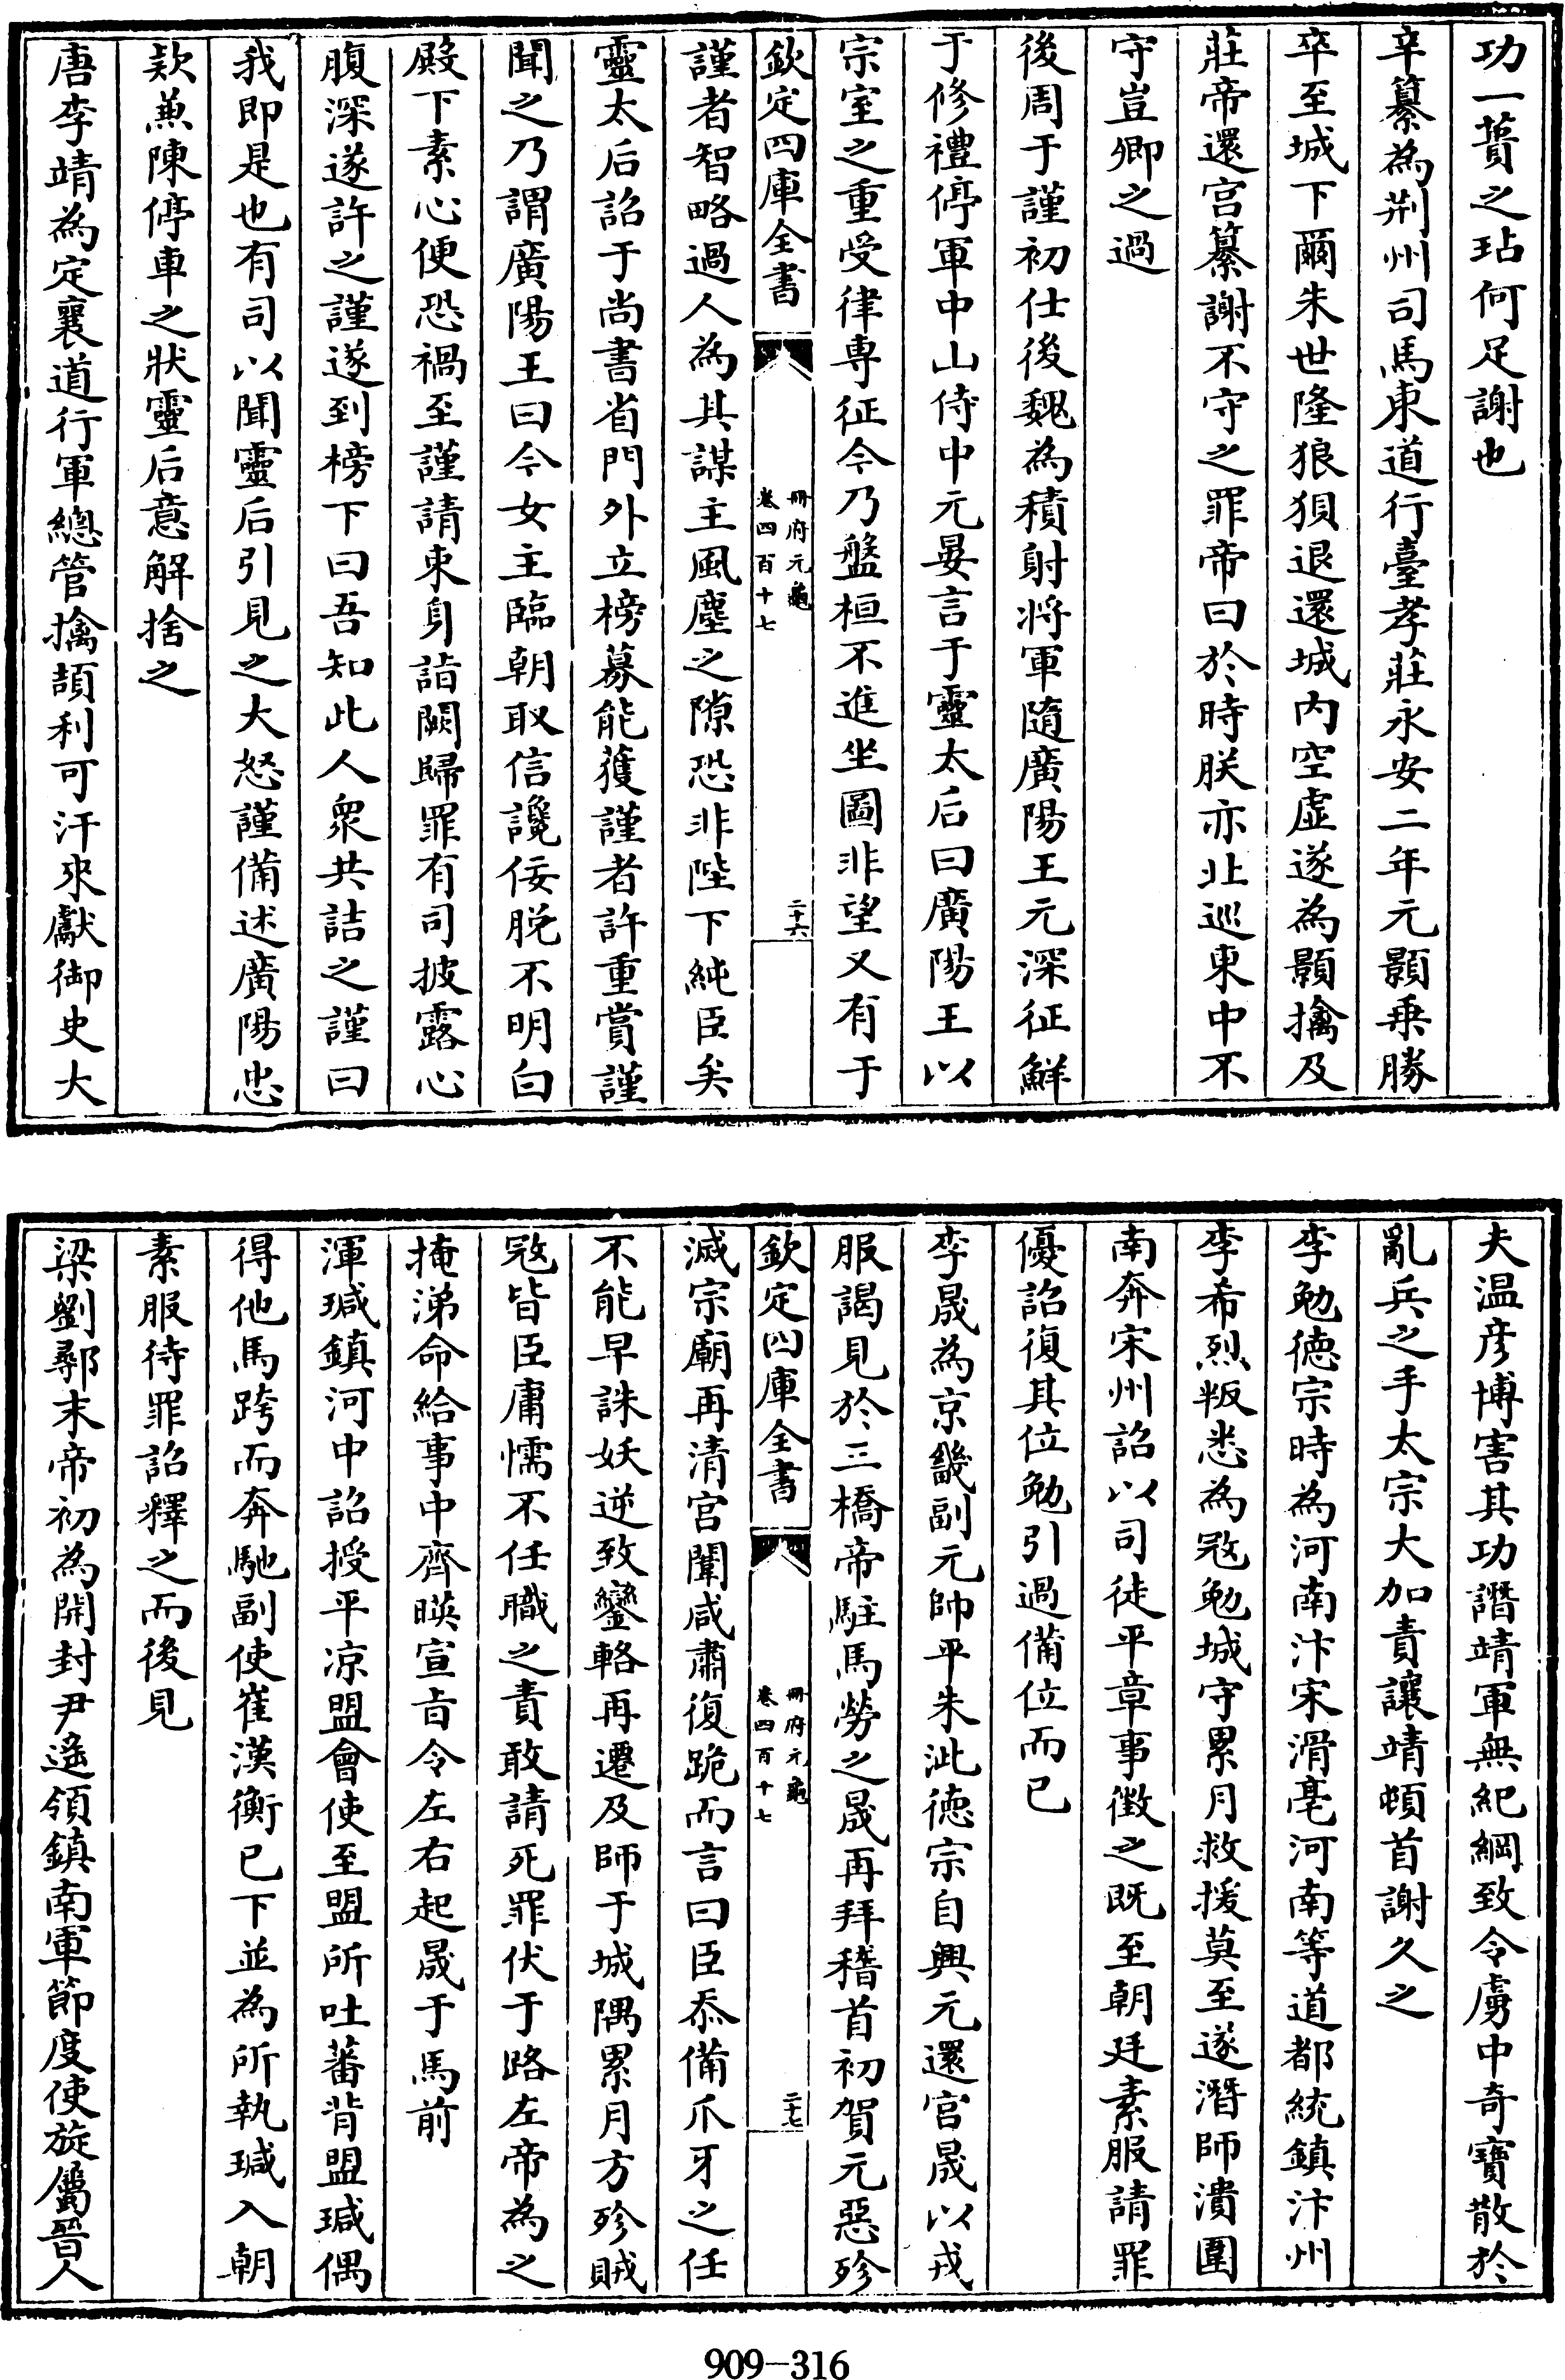 功一蕢之玷何足謝也
辛纂為荆州司馬東道行臺孝莊永安二年元顥乗勝
卒至城下爾朱世隆狼狽退還城内空虚遂為顥擒及
莊帝還宫纂謝不守之罪帝曰於時朕亦北巡東中不
守豈卿之過
後周于謹初仕後魏為積射將軍隨廣陽王元深征鮮
于修禮停軍中山侍中元晏言于靈太后曰廣陽王以
宗室之重受律専征今乃盤桓不進坐圖非望又有于
欽定四庫全書
冊府元龜
卷四百十七
二十六
謹者智略過人為其謀主風塵之隙恐非陛下純臣矣
靈太后詔于尚書省門外立榜募能獲謹者許重賞謹
聞之乃謂廣陽王曰今女主臨朝取信讒佞脱不明白
殿下素心便恐禍至謹請束身詣闕歸罪有司披露心
腹深遂許之謹遂到榜下曰吾知此人衆共詰之謹曰
我即是也有司以聞靈后引見之大怒謹備述廣陽忠
欵兼陳停車之狀靈后意解捨之
唐李靖為定襄道行軍總管擒頡利可汗來獻御史大
夫温彦博害其功譖靖軍無紀綱致令虜中奇寶散於
亂兵之手太宗大加責讓靖頓首謝久之
李勉徳宗時為河南汴宋滑亳河南等道都統鎮汴州
李希烈叛悉為冦勉城守累月救援莫至遂潛師潰圍
南奔宋州詔以司徒平章事徴之既至朝廷素服請罪
優詔復其位勉引過備位而已
李晟為京畿副元帥平朱泚徳宗自興元還宫晟以戎
服謁見於三橋帝駐馬勞之晟再拜稽首初賀元惡殄
欽定四庫全書
冊府元龜
卷四百十七
二十七
滅宗廟再清宫闈咸肅復跪而言曰臣忝備爪牙之任
不能早誅妖逆致鑾輅再遷及師于城隅累月方殄賊
冦皆臣庸懦不任職之責敢請死罪伏于路左帝為之
掩涕命給事中齊暎宣㫖令左右起晟于馬前
渾瑊鎮河中詔授平凉盟會使至盟所吐蕃背盟瑊偶
得他馬跨而奔馳副使崔漢衡已下並為所執瑊入朝
素服待罪詔釋之而後見
梁劉鄩末帝初為開封尹遥領鎮南軍節度使旋屬晉人
909-316